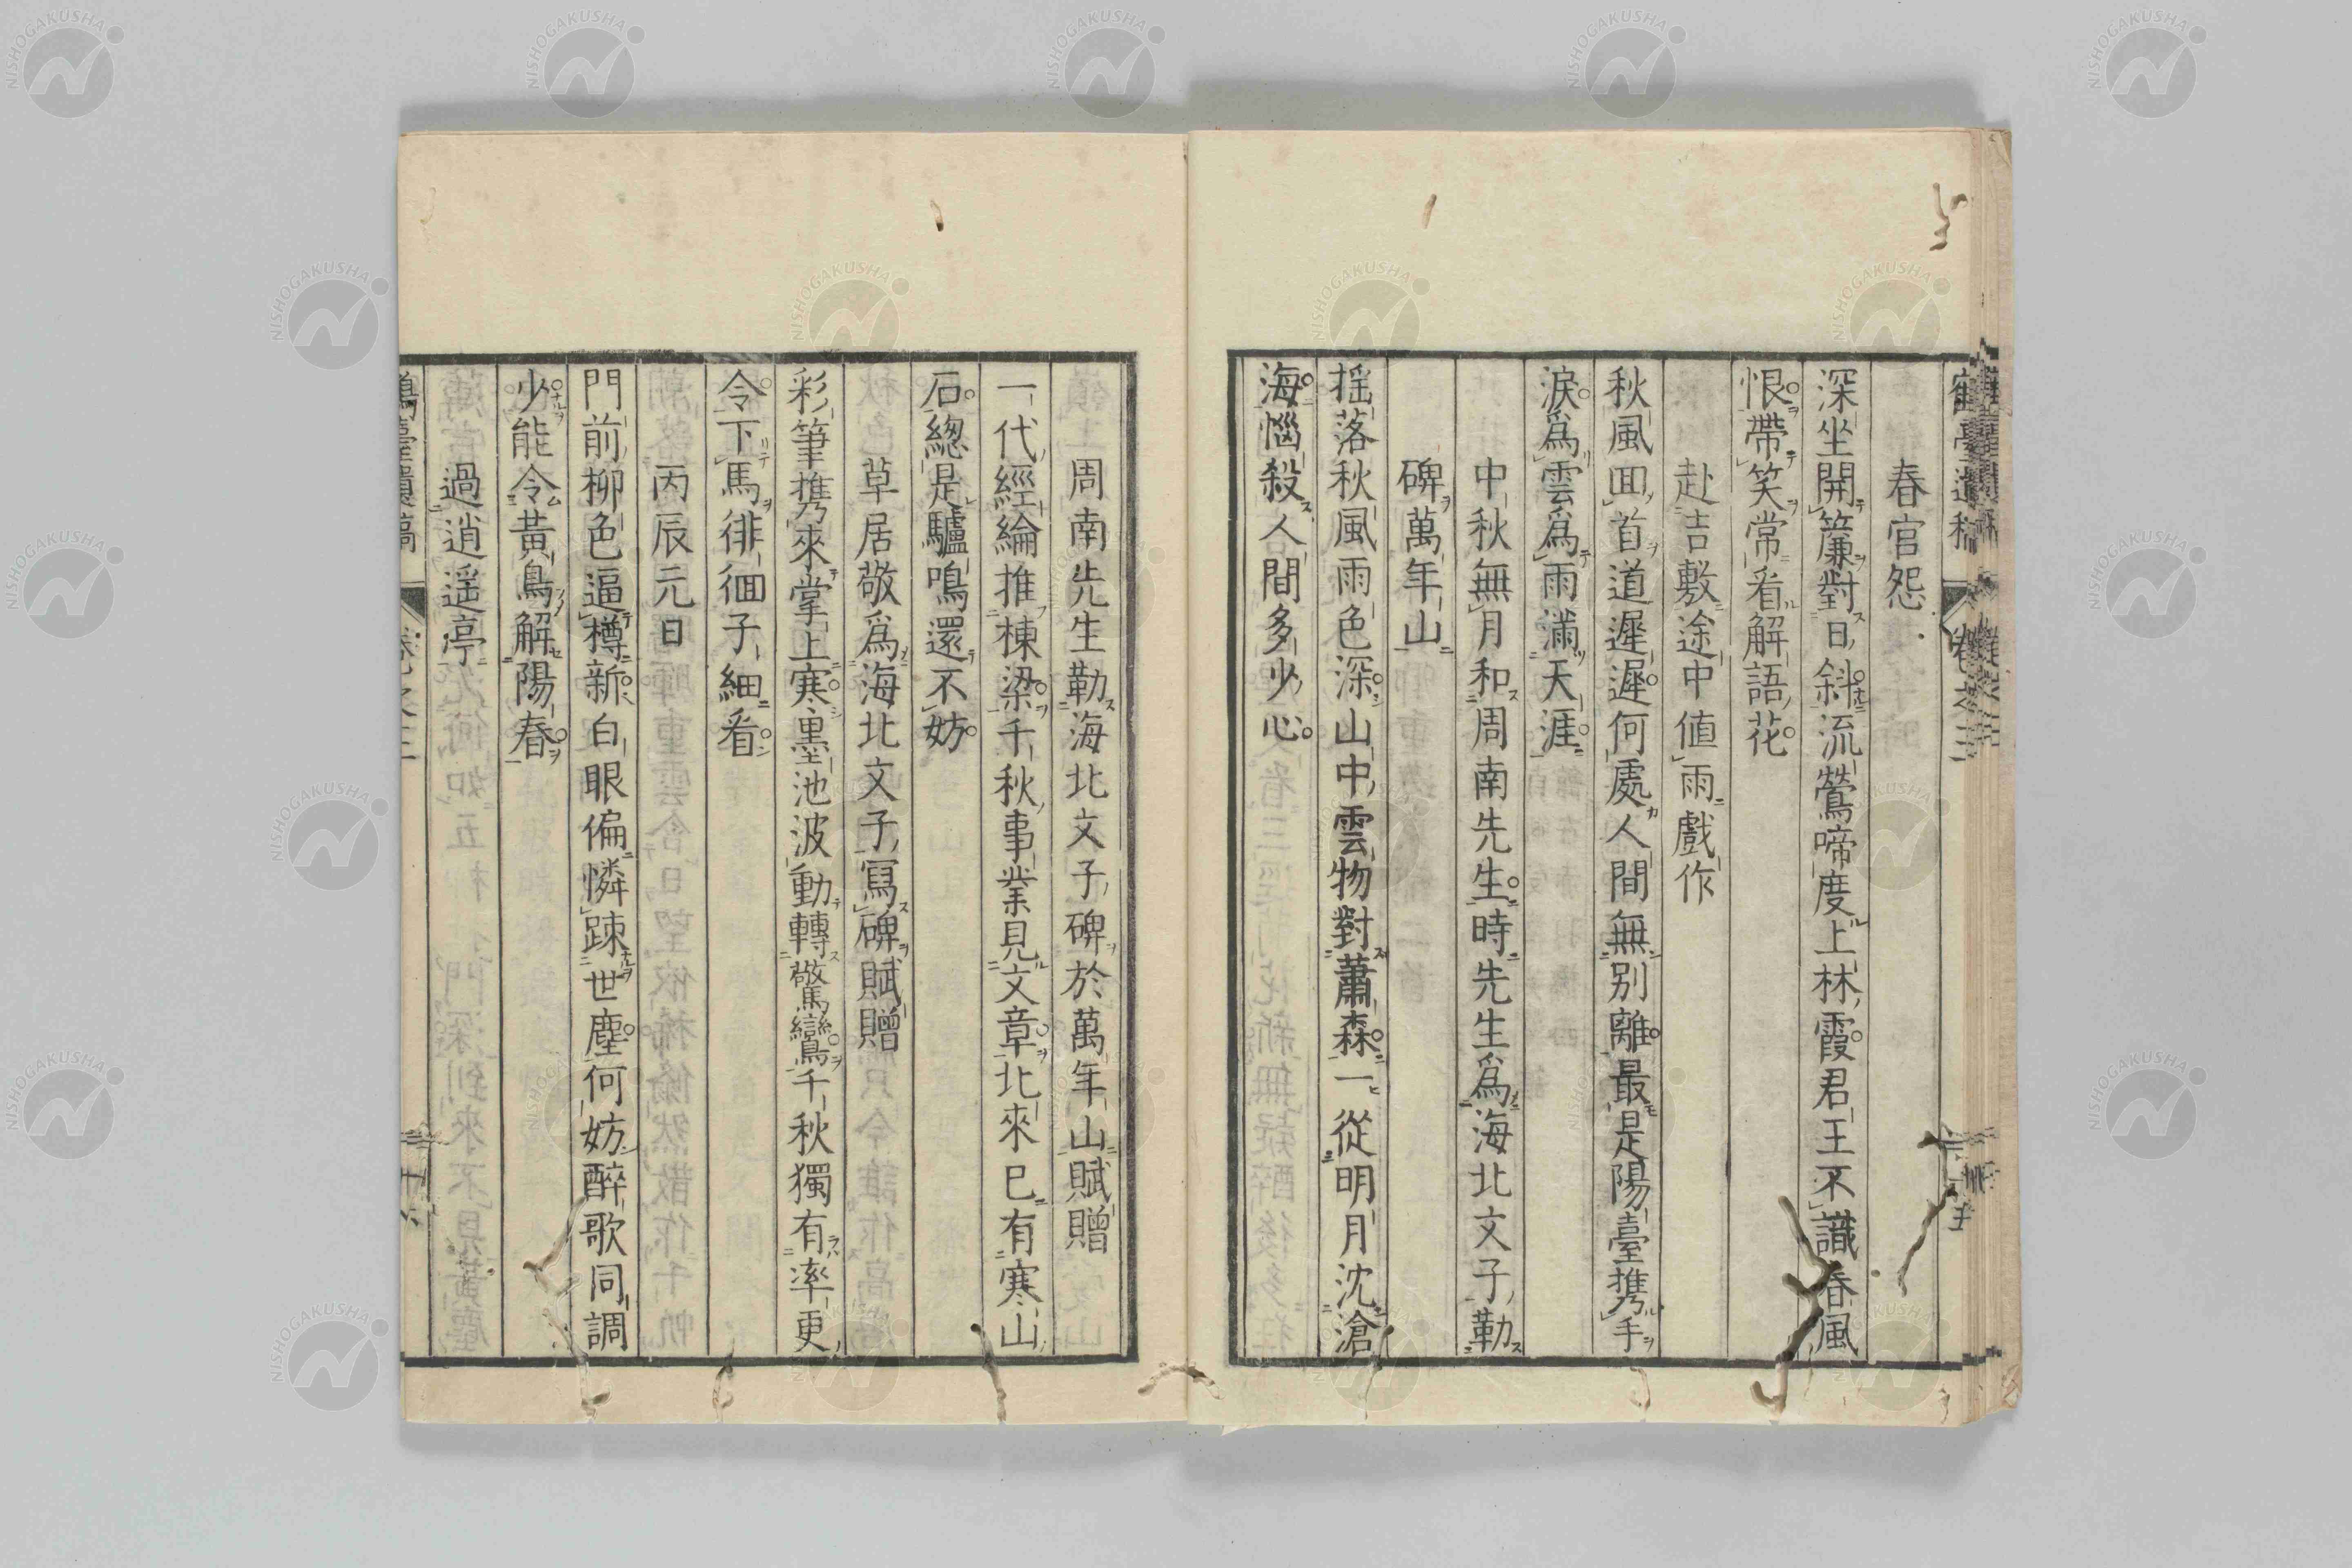 春官怨
深坐開簾對日斜流鶯啼度上林霞君王不識春風
恨帶笑常看解語花
赴吉敷途中値雨戲作
秋風回首道遲遲何處人間無別離最是陽臺携手
淚爲雲爲雨滿天涯
中秋無月和周南先生時先生爲海北文子勒
碑萬年山
摇落秋風雨色深山中雲物對蕭森一從明月沈滄
海惱殺人間多少心
周南先生勒海北文子碑於萬年山賦贈
一代經綸推棟梁千秋事業見文章北來已有寒山
石總是驢鳴還不妨
草居敬爲海北文子寫碑賦贈
彩筆携來掌上寒墨池波動轉驚鸞千秋獨有率更
令下馬徘徊子細看
丙辰元日
門前柳色逼樽新白眼偏憐踈世塵何妨醉歌同調
少能令黃鳥解陽春
過逍遥亭